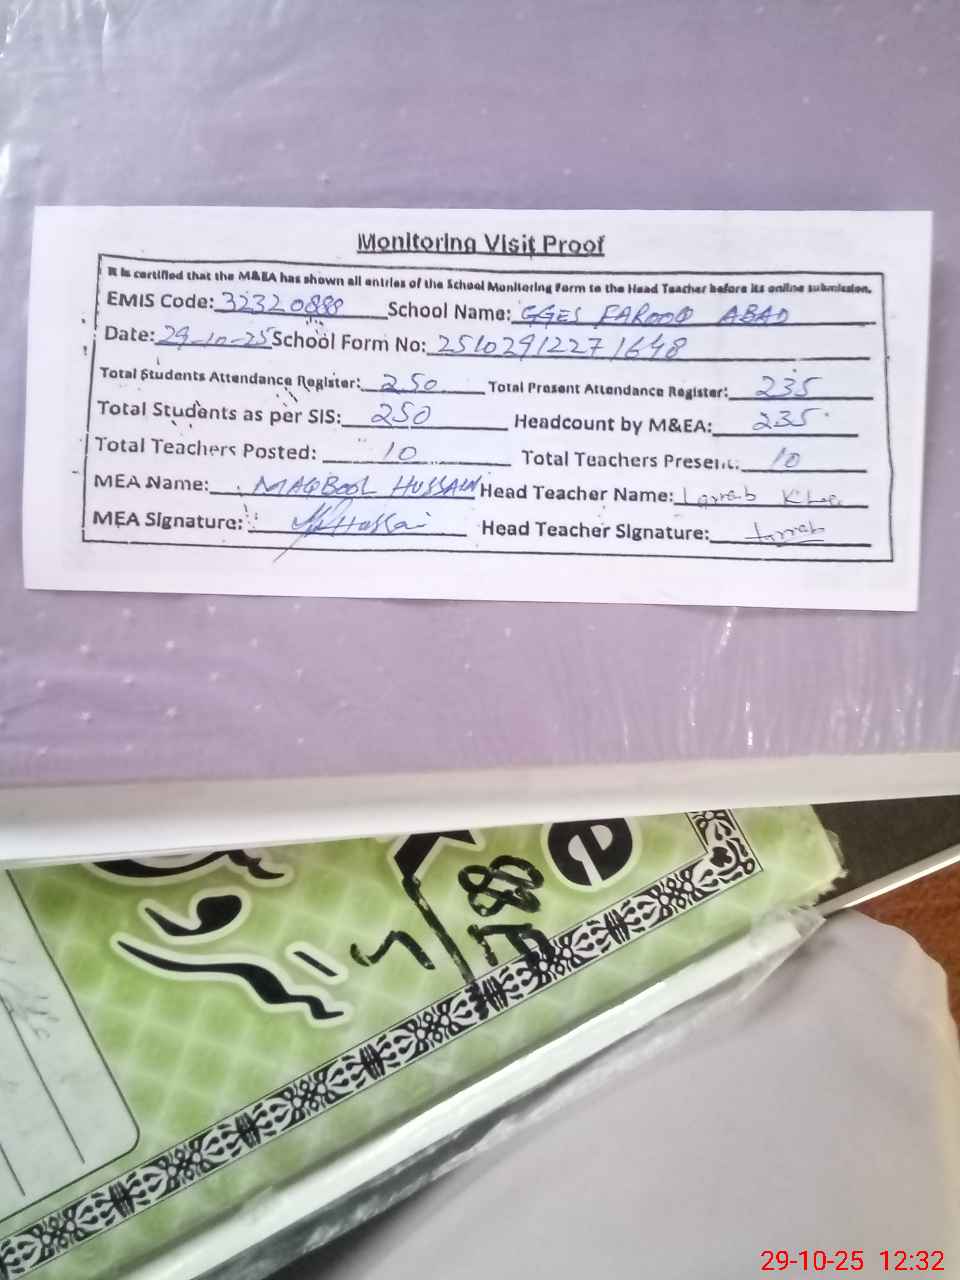 Monitoring Visit Proof
It is certified that the M&EA has shown all entries of the School Monitoring Form to the Head Teacher before its online submission.
EMIS Code: 32320888 School Name: GGES FAROOQ ABAD
Date: 29-10-25 School Form No: 25102912271648
Total Students Attendance Register: 250 Total Present Attendance Register: 235
Total Students as per SIS: 250 Headcount by M&EA: 235
Total Teachers Posted: 10 Total Teachers Present: 10
MEA Name: MAQBOOL HUSSAIN Head Teacher Name:
MEA Signature: Hussai Head Teacher Signature:
29-10-25 12:32